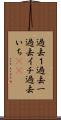 過去1過去一
過去イチ過去
いち